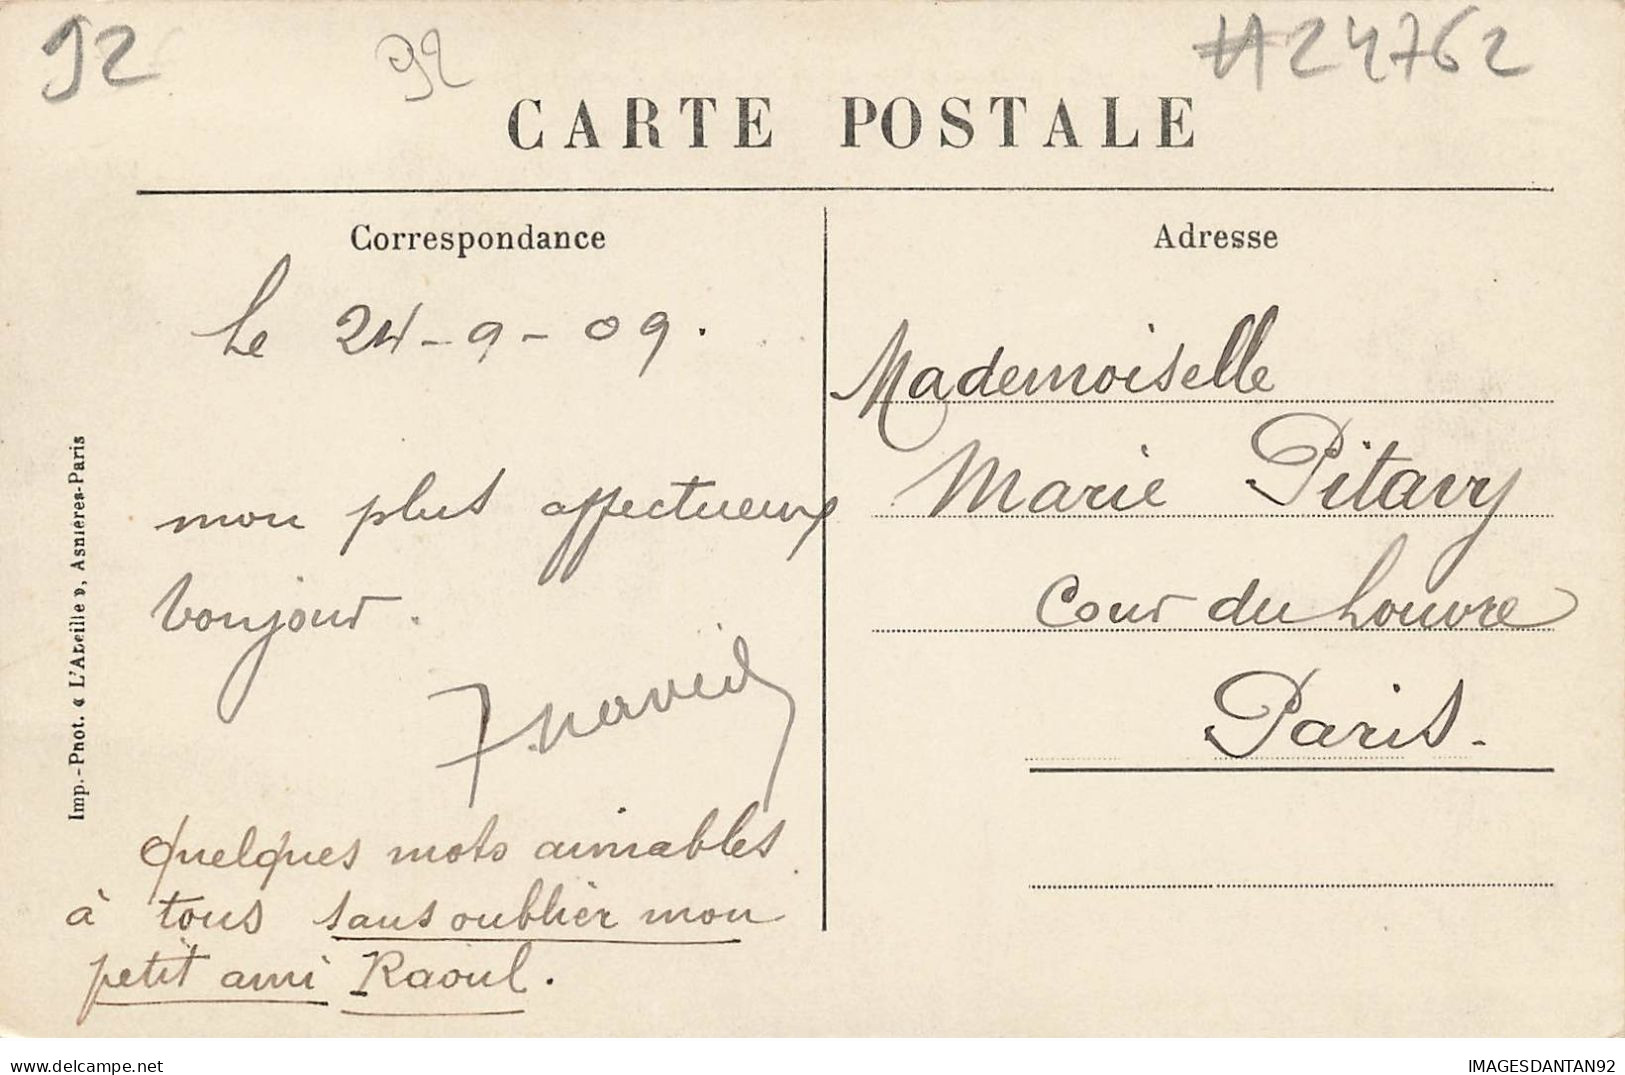 92
92
#24762
CARTE POSTALE
Correspondance
Adresse
le 24-9-09.
mon plus affectueux
bonjour.
Quelques mots aimables
à tous sans oublier mon
petit ami Raoul.
Mademoiselle
Marie Pitavy
Cour du Louvre
Paris.
Imp.-Phot. « L'Abeille », Asnières-Paris
IMAGESDANTAN92